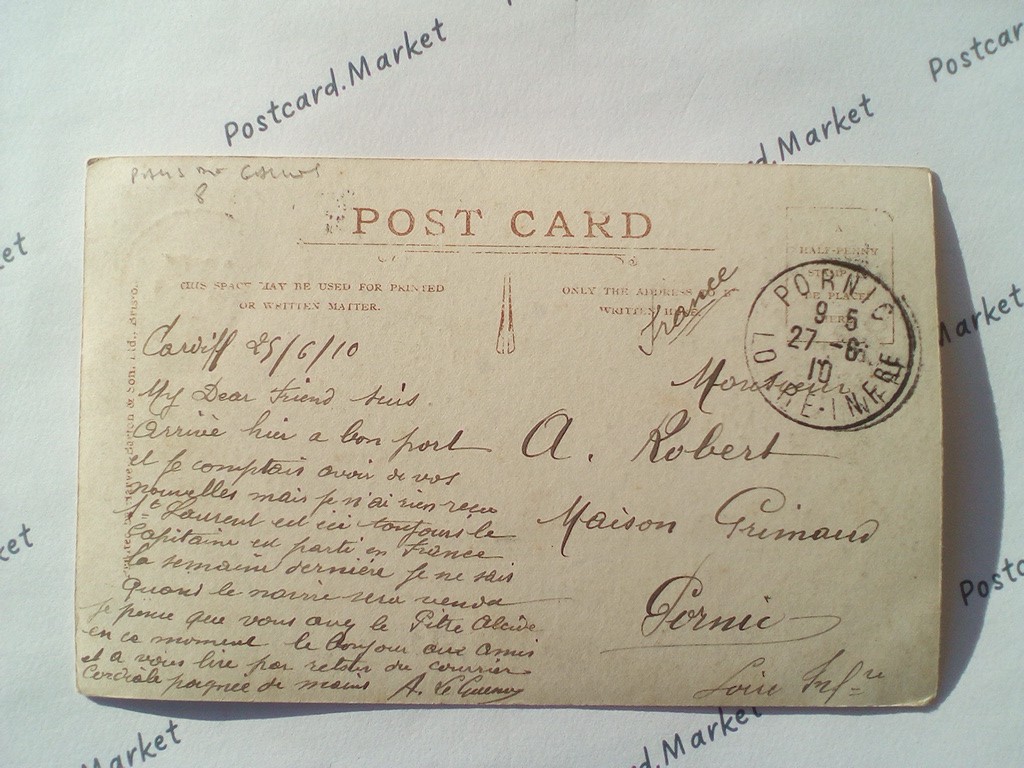 Postcard.Market
POST CARD
THIS SPACE MAY BE USED FOR PRINTED
OR WRITTEN MATTER.
ONLY THE ADDRESS TO BE
WRITTEN HERE.
A
HALF-PENNY
STAMP
BE PLACED
HERE
PORNIC
9 5
27 -6
10
LOIRE-INFRE
france
Cardiff 25/6/10
My Dear Friend suis
Arrivé hier a bon port
et je comptais avoir de vos
nouvelles mais je n'ai rien reçu
St Laurent est ici toujours le
Capitaine est parti en France
la semaine dernière je ne sais
quand le navire sera vendu
je pense que vous avez le Ptre Alcide
en ce moment le bonjour aux amis
et a vous lire par retour du courrier
Cordiale poignée de mains A. Le
Monsieur
A. Robert
Maison Grimaud
Pornic
Loire Infre
& Son, Ltd., Bristo.
Postcard.Market
Postcard.Market